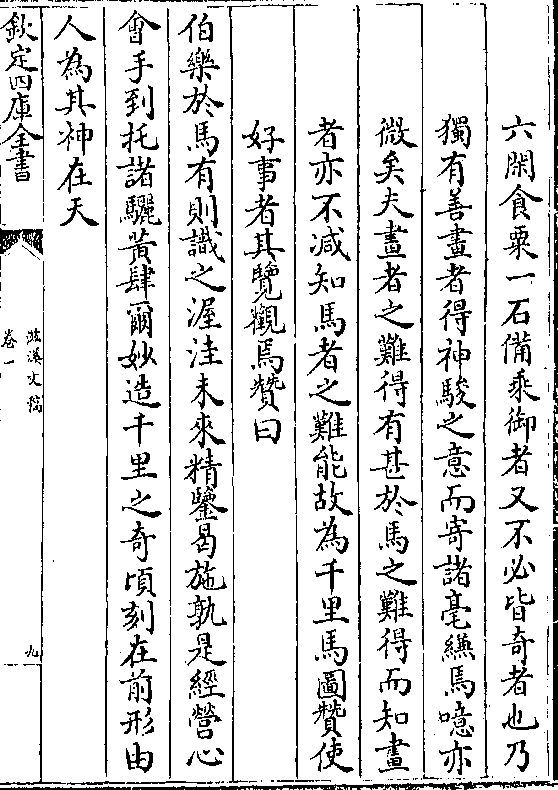 六閑食粟一石備乘御者又不必皆奇者也乃
獨有善畫者得神駿之意而寄諸毫縑焉噫亦
微矣夫畫者之難得有甚於馬之難得而知畫
者亦不減知馬者之難能故為千里馬圖贊使
好事者其覽觀焉贊曰
伯樂於馬有則識之渥洼未來精鑒曷施孰是經營心
會手到托諸驪黃肆爾妙造千里之奇頃刻在前形由
人為其神在天
欽定四庫全書
卷一
九